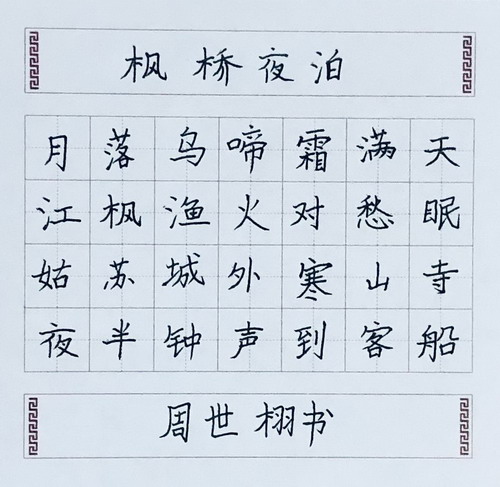 枫桥夜泊
月落乌啼霜满天
江枫渔火对愁眠
姑苏城外寒山寺
夜半钟声到客船
周世栩书